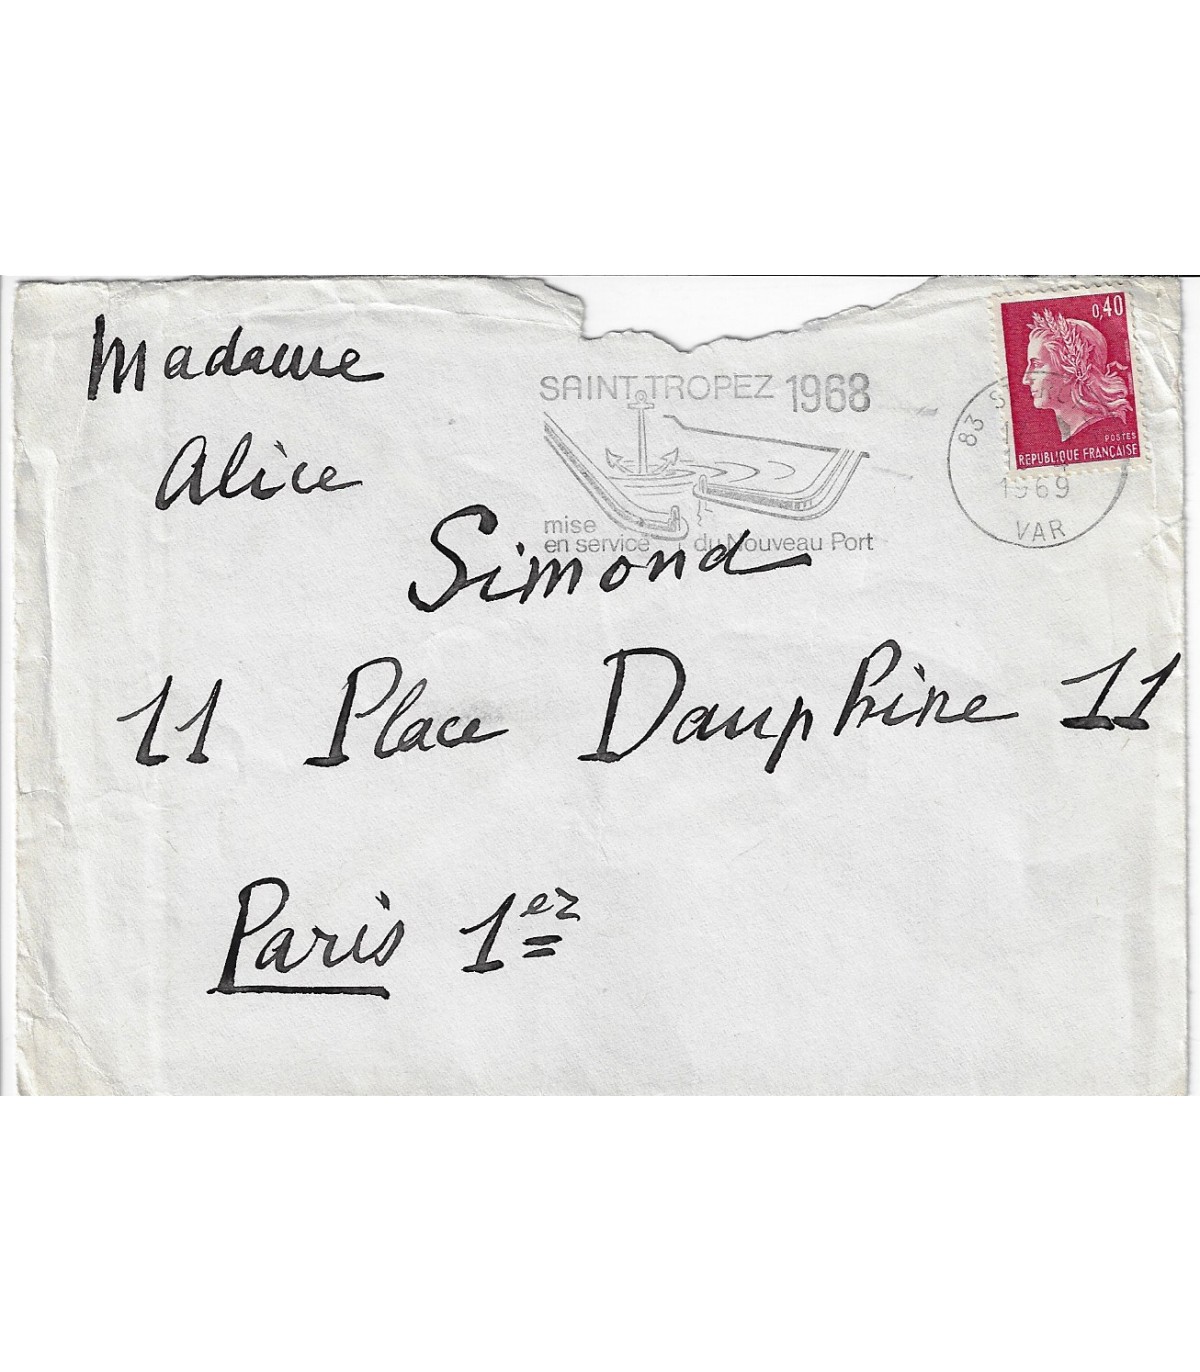 0,40
POSTES
REPUBLIQUE FRANÇAISE
SAINT-TROPEZ 1968
mise
en service du Nouveau Port
83
1969
VAR
Madame
Alice
Simond
11 Place Dauphine 11
Paris 1er